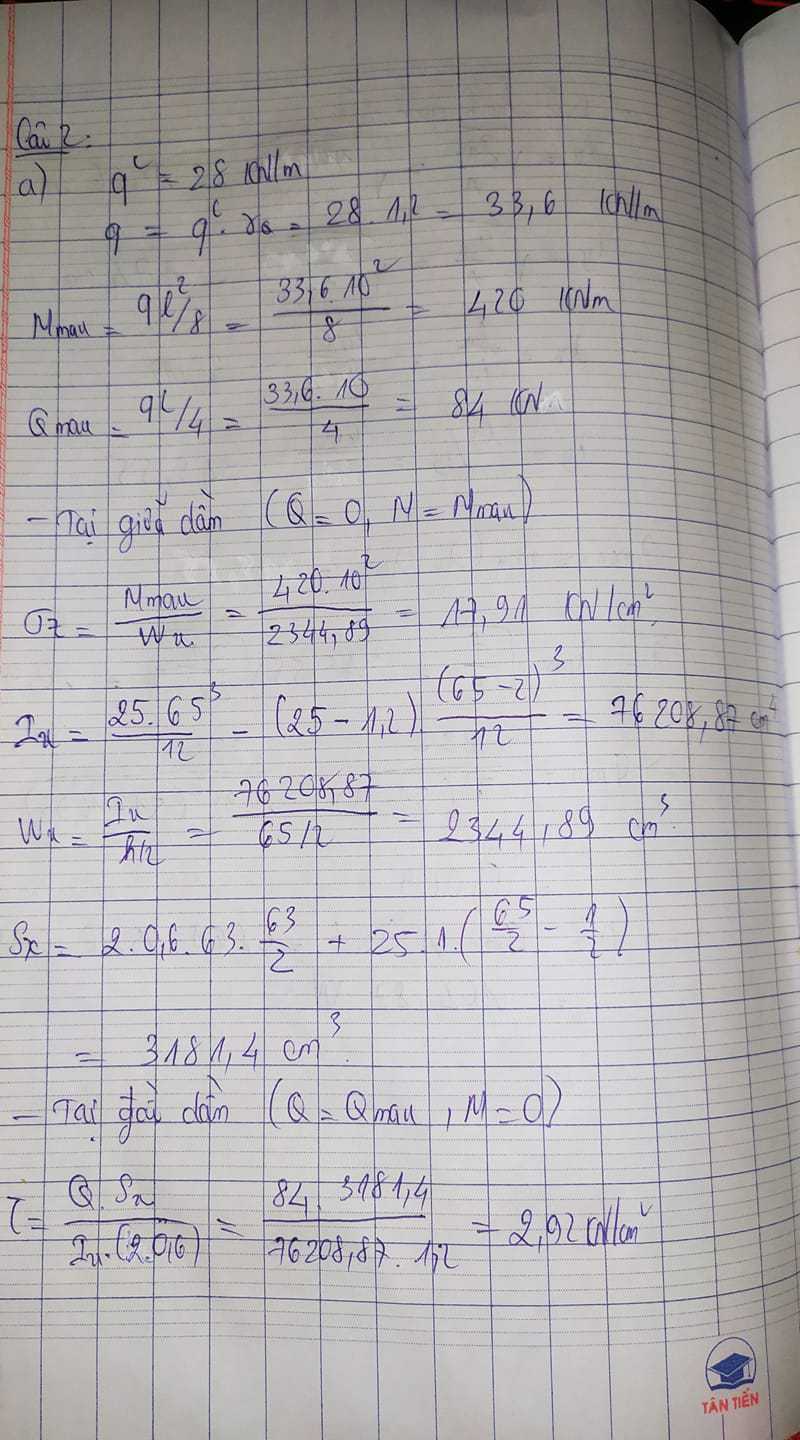 Câu 2:
a) q^c = 28 KN/m
q = q^c. γQ = 28. 1,2 = 33,6 KN/m
Mmax = ql²/8 = 33,6.10²/8 = 420 KNm
Qmax = ql/4 = 33,6.10/4 = 84 KN
- Tại giữa dầm (Q = 0, M = Mmax)
σz = Mmax/Wx = 420.10²/2344,89 = 17,91 KN/cm²
Ix = 25.65³/12 - (25 - 1,2) (65 - 2)³/12 = 76208,87 cm⁴
Wx = Ix/h/2 = 76208,87/65/2 = 2344,89 cm³.
Sx = 2.0,6.63.63/2 + 25.1.(65/2 - 1/2)
= 3181,4 cm³.
- Tại đầu dầm (Q = Qmax, M = 0)
τ = Q.Sx/Ix.(2.0,6) = 84.3181,4/76208,87.1,2 = 2,92 KN/cm²
TÂN TIẾN